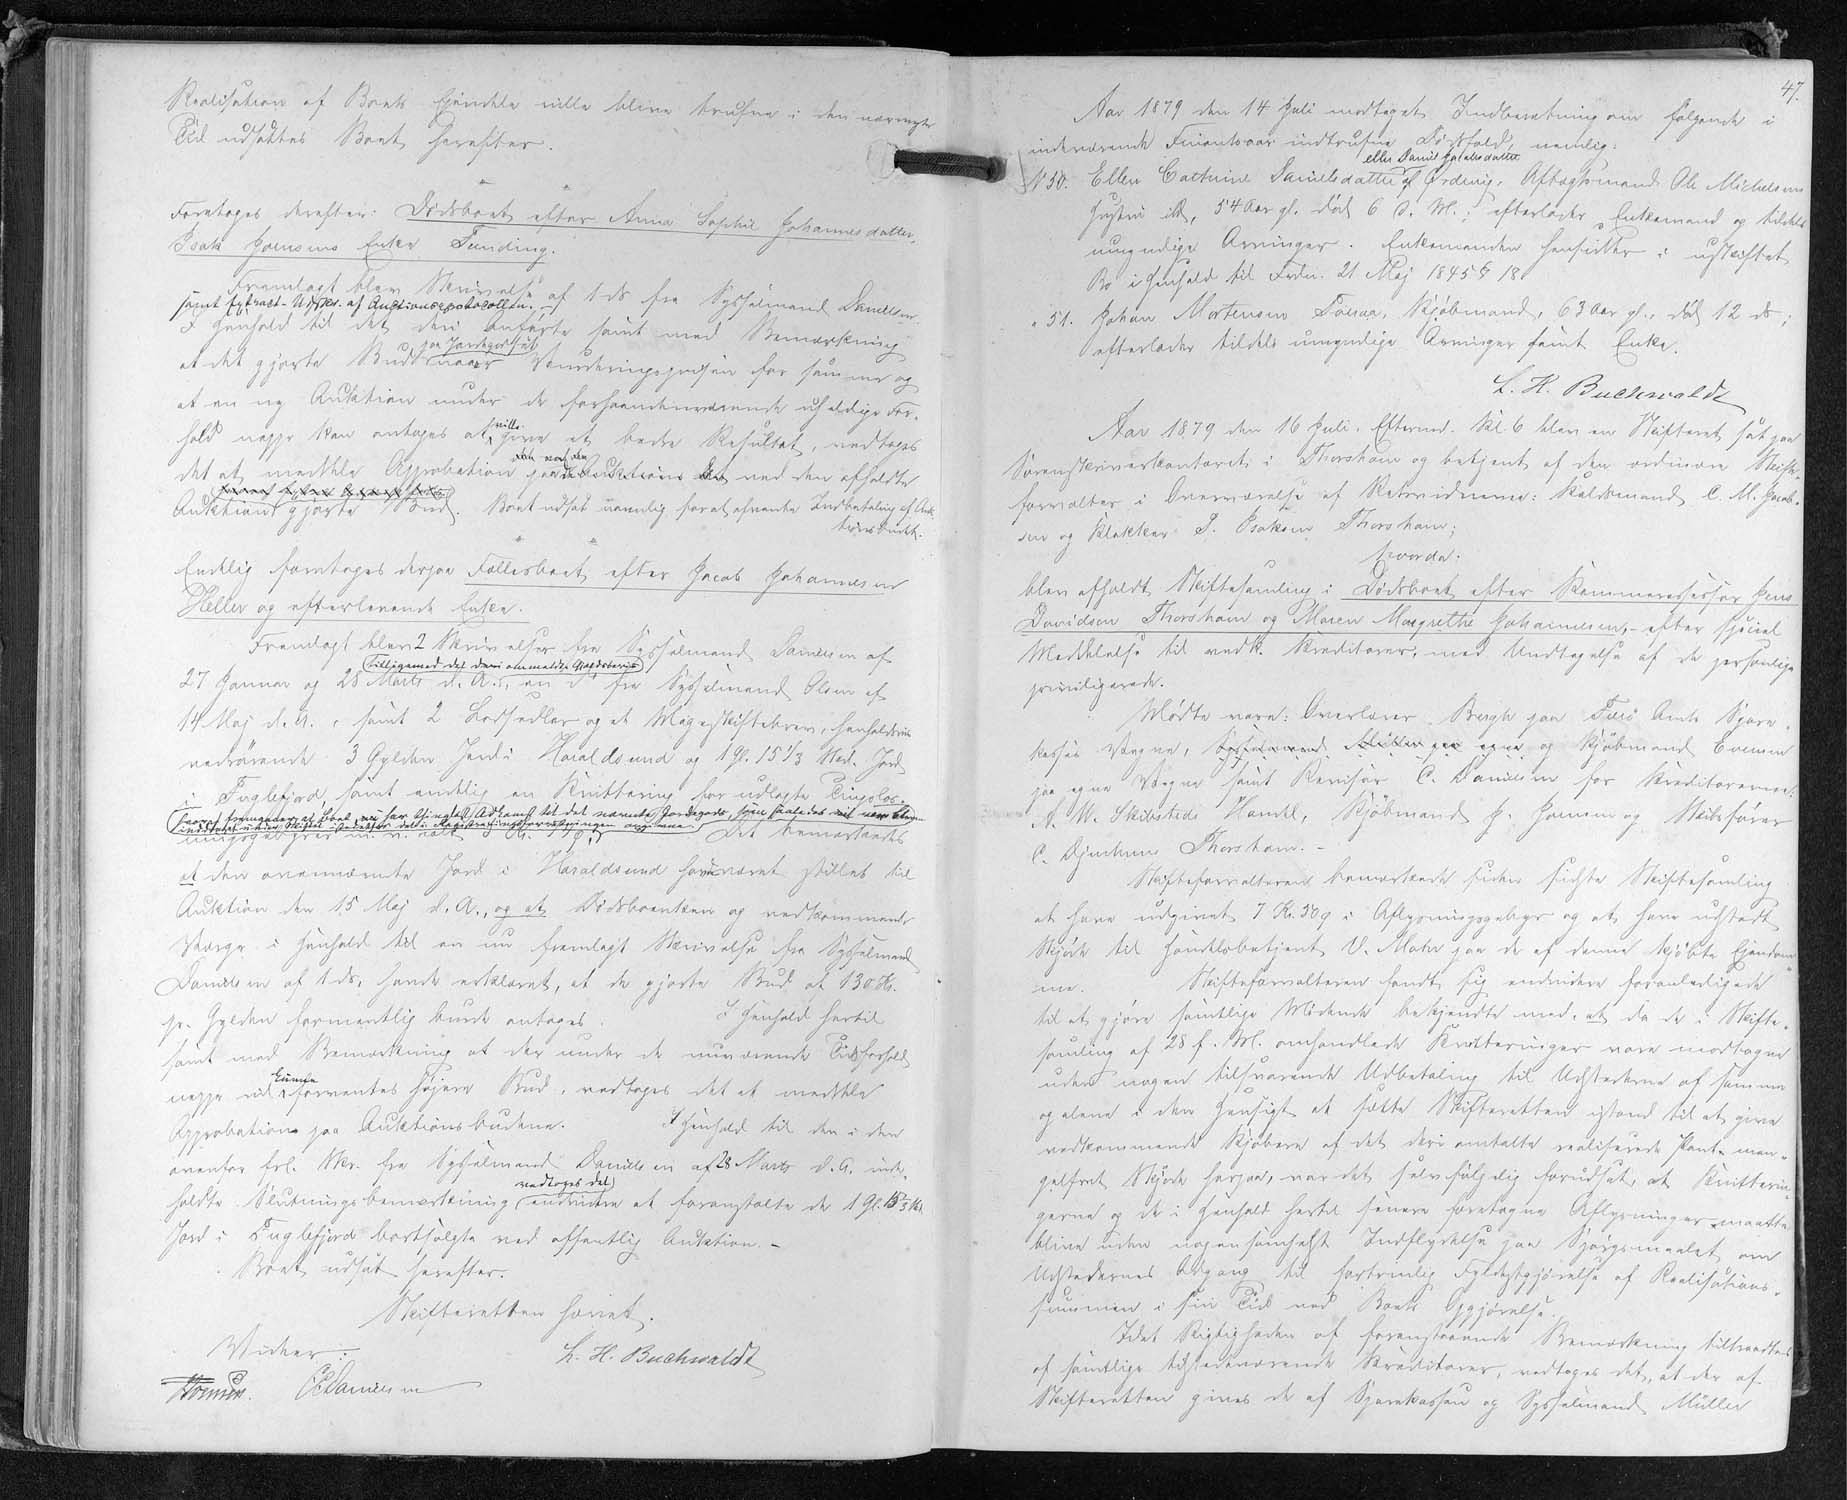 Realisation af Boets Ejendele ville blive trufne i den nærmeste
Tid udsattes Boet herefter.
Foretoges derefter: Dødsboet efter Anna Sophie Johannesdatter,
Isak Joensens Enke Funding.
Fremlagt blev Skrivelse af 1 ds fra Sysselmand Danielsen
samt Extract-Udskr. af Auctionsprotocollen.
I Henhold til det deri anførte samt med Bemærkning
at det gjorte Bud paa Jordegodset naaer Vurderingsprisen for samme og
at en ny Auktion under de forhaandenværende uheldige For-
hold neppe kan antages at ville give et bedre Resultat, vedtoges
det at meddele Approbation paa det ved den afholdte
Auktion gjorte Bud. Boet udsat navnlig for at afvente Indbetaling af Auk-
tionsbudet.
Endelig foretoges derpaa Fællesboet efter Jacob Johannesen
Heller og efterlevende Enke.
Fremlagt blev 2 Skrivelser fra Sysselmand Danielsen af
tilligemed det deri ommeldte Gjældsbevis
27 Januar og 28 Marts d. A., en do fra Sysselmand Olsen af
14 Maj d. A., samt 2 Lodsedler og et Mageskiftebrev, henholdsvis
vedrørende 3 Gylden Jord i Haraldsund og 1 Gl. 15 1/3 Sk. Jord
i Fuglefjord, samt endelig en Kvittering for udlagte Tinglæs-
ningsgebyrer m. v. Det bemærkedes
at den ovennævnte Jord i Haraldsund havde været stillet til
Auktion den 15 Maj d. A., og at Dødsboenken og vedkommende
Værge i Henhold til en nu fremlagt Skrivelse fra Sysselmand
Danielsen af 1 ds. havde erklæret, at de gjorte Bud af 130 Kr.
pr. Gylden formentlig burde antages. I Henhold hertil
samt med Bemærkning at der under de nuværende Tidsforhold
neppe vil kunne forventes højere Bud, vedtoges det at meddele
Approbation paa Auktionsbudene. I Henhold til den i den
ovenfor frl. Skr. fra Sysselmand Danielsen af 28 Marts d. A. inde-
holdte Slutningsbemærkning vedtoges det endvidere at foranstalte de 1 Gl. 15 1/3 Sk.
Jord i Fuglefjord bortsolgte ved offentlig Auktion. –
Boet udsat herefter.
Skifteretten hævet.
Vidner: L. H. Buchwaldt
Danielsen
47.
Aar 1879 den 14 Juli modtaget Indberetning om følgende i
indeværende Finantsaar indtrufne Dødsfald, nemlig:
eller Daniel Jacobsdatter
N 50. Ellen Cathrine Danielsdatter af Ørdevig, Aftægtsmand Ole Michelsens
Hustru ib., 54 Aar gl. død 6 d. M.; efterlader Enkemand og tildels
umyndige Arvinger. Enkemanden hensidder i uskiftet
Bo i Henhold til Frdn. 21 Maj 1845 § 18.
" 51. Johan Mortensen Kjøbmand, 63 Aar gl., død 12 ds;
efterlader tildels umyndige Arvinger samt Enke.
L. H. Buchwaldt
Aar 1879 den 16 Juli, Efterm. Kl. 6 blev en Skifteret sat paa
Sorenskriverkontoret i Thorshavn og betjent af den ordinære Skifte-
forvalter i Overværelse af Retsvidnerne: C. M. Jacob-
sen og Klokker P. Isaksen Thorshavn;
hvorda:
blev afholdt Skiftesamling i Dødsboet efter Kammerassessor Jens
Davidsen Thorshavn og Maren Margrethe Johannesen, – efter speciel
Meddelelse til vedk. Kreditorer, med Undtagelse af de personlige
privilegerede.
Mødte vare: Overlærer Bergh paa Færø Amts Spare-
kasses Vegne, Sysselmand Müller paa egne og Kjøbmand Evensen
paa egne Vegne samt Revisor C. Danielsen for Kreditorerne:
A. W. Skibsteds Handel, Kjøbmand J. Hansen og Skibsfører
C. Djurhuus Thorshavn. –
Skifteforvalteren bemærkede siden sidste Skiftesamling
at have udgivet 7 Kr. 50 Ø i Aflysningsgebyr og at have udstedt
Skjøde til Handelsbetjent V. Mohr paa de af denne kjøbte Ejendom-
me. Skifteforvalteren fandt sig endvidere foranlediget
til at gjøre samtlige Mødende bekjendte med, at da de i Skifte-
samling af 28 f. M. omhandlede Kvitteringer vare modtagne
uden nogen tilsvarende Udbetaling til Udstederne af samme
og alene i den Hensigt at sætte Skifteretten istand til at give
vedkommende Kjøbere af det deri omtalte realiserede Pant man-
gelfrit Skjøde herpaa, var det selvfølgelig forudsat, at Kvitterin-
gerne og de i Henhold hertil senere foretagne Aflysninger maatte
blive uden nogensomhelst Indflydelse paa Spørgsmaalet om
Udstedernes Adgang til særlig Fyldestgjørelse af Realisations-
summen i sin Tid ved Boets Opgjørelse.
Idet Rigtigheden af foranstaaende Bemærkning tiltraadtes
af samtlige tilstedeværende Kreditorer, vedtoges det, at der af
Skifteretten gives de af Sparekassen og Sysselmand Müller